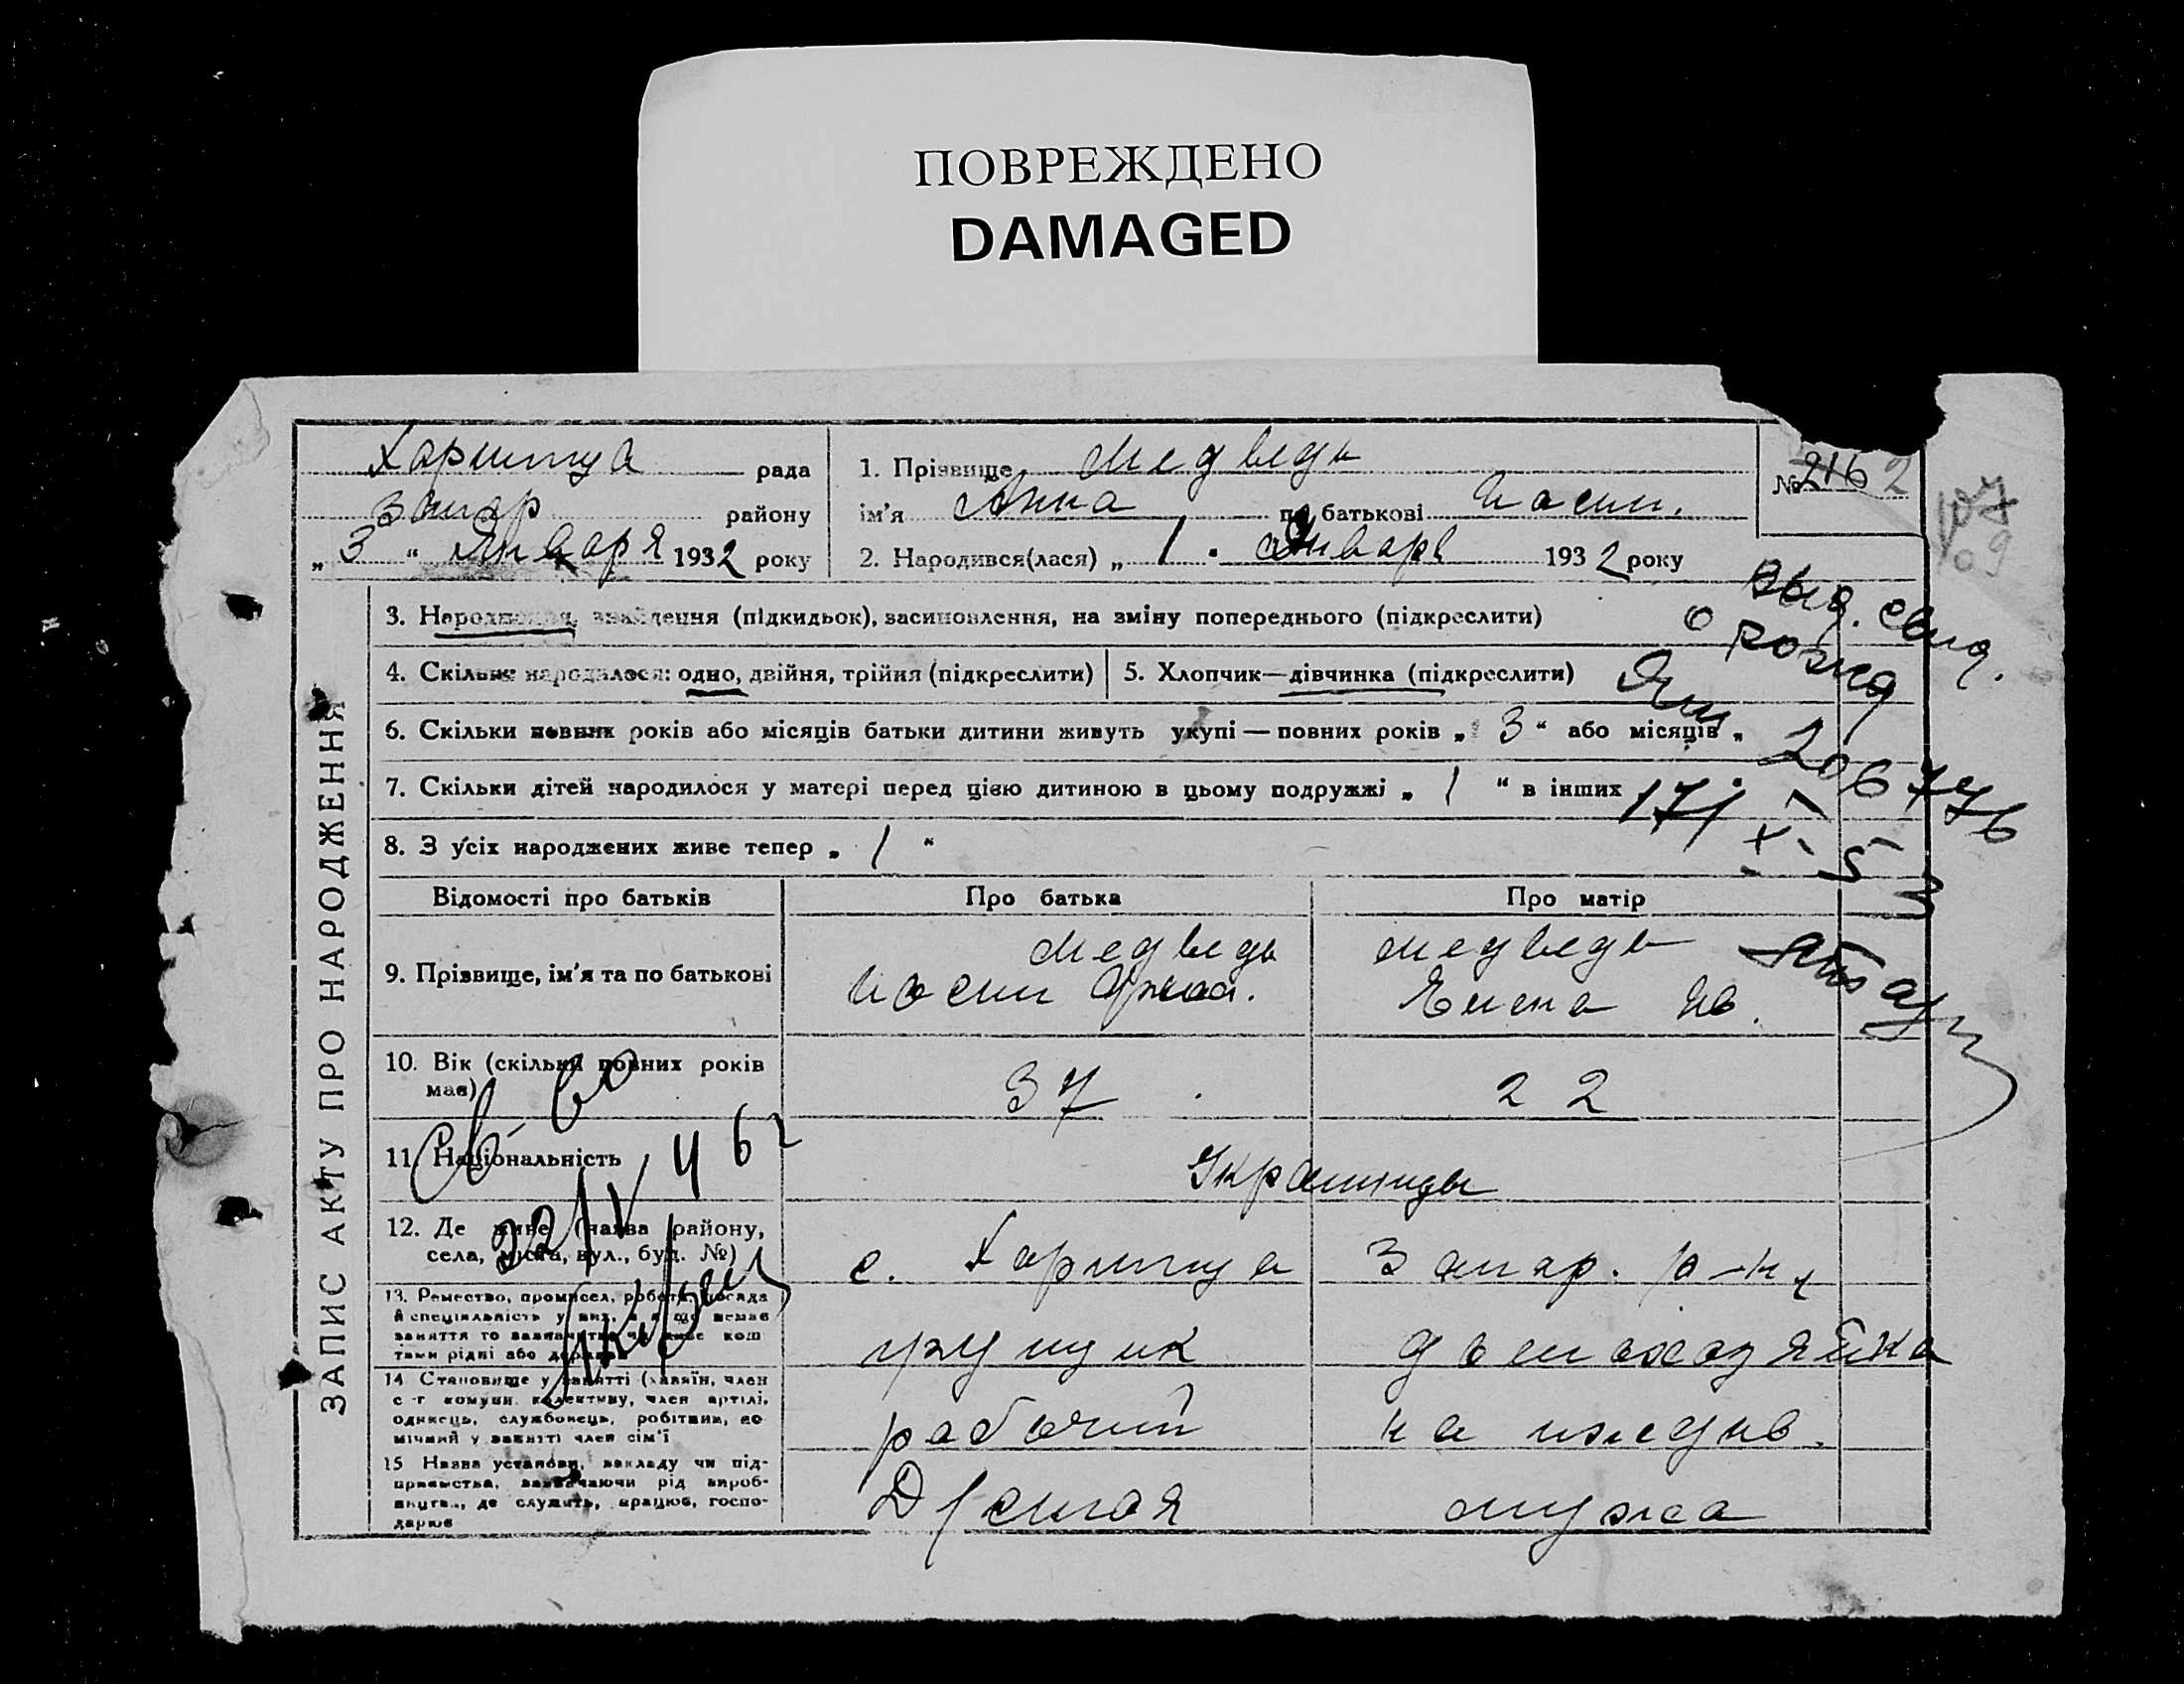 ПОВРЕЖДЕНО
DAMAGED
Хортица рада
Запор району
„ 3 “ Января 1932 року
1. Прізвище Медведь
ім'я Анна по батькові Иосип.
2. Народився(лася) „ 1 . Января 1932 року
№ 216 2
ЗАПИС АКТУ ПРО НАРОДЖЕННЯ
3. Народження, знайдення (підкидьок), засиновлення, на зміну попереднього (підкреслити)
4. Скільки народилося: одно, двійня, трійня (підкреслити)
5. Хлопчик—дівчинка (підкреслити)
6. Скільки повних років або місяців батьки дитини живуть укупі — повних років „ 3 “ або місяців „
7. Скільки дітей народилося у матері перед цією дитиною в цьому подружжі „ 1 “ в інших
8. З усіх народжених живе тепер „ 1 “
выд. свид.
о рожд
206776
Відомості про батьків
Про батька
Про матір
9. Прізвище, ім'я та по батькові
Медведь
Иосип
Медведь
Елена Ив.
10. Вік (скільки повних років має)
37
22
11. Національність
Украинцы
12. Де живе (назва району,
села, міста, вул., буд. №)
с. Хортица Запор. р-на
13. Ремество, промисел, робота, посада
й спеціяльність у них, а якщо немає
заняття то зазначити чи живе кош
тами рідні або держави
грущик
домохозяйка
14 Становище у занятті (хазяїн, член
с-г комуни, колективу, член артілі,
одинець, службовець, робітник, по
мічний у занятті член сім'ї
рабочий
на иждив.
15 Назва установи, закладу чи під-
приємства, зазначаючи рід вироб-
ництва, де служить, працює, госпо-
дарює
мужа